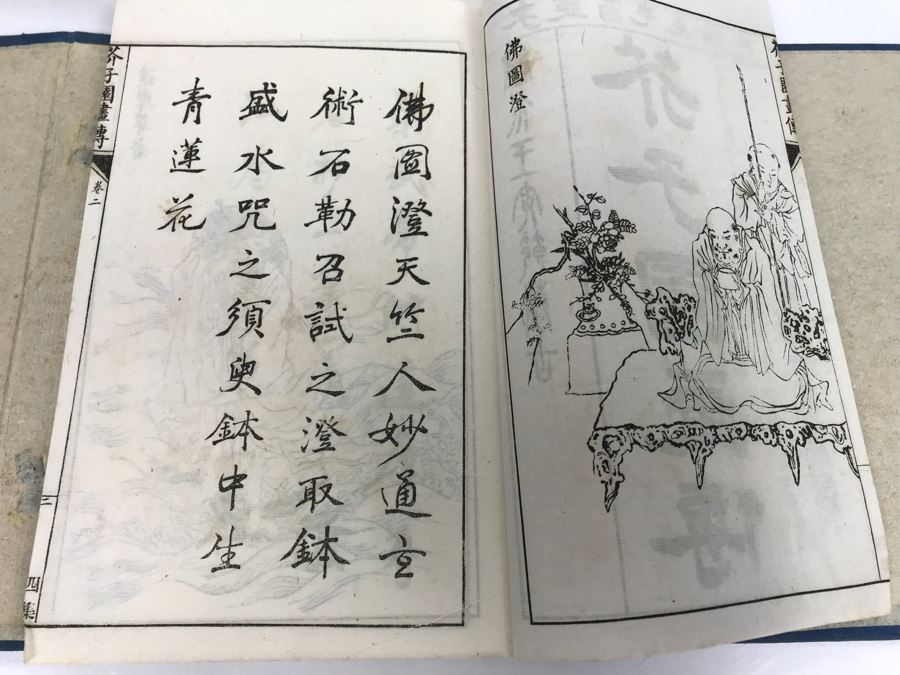 佛圖澄
佛圖澄天竺人妙通玄
術石勒召試之澄取鉢
盛水呪之須臾鉢中生
青蓮花
芥子園畫傳
卷二
三
四集